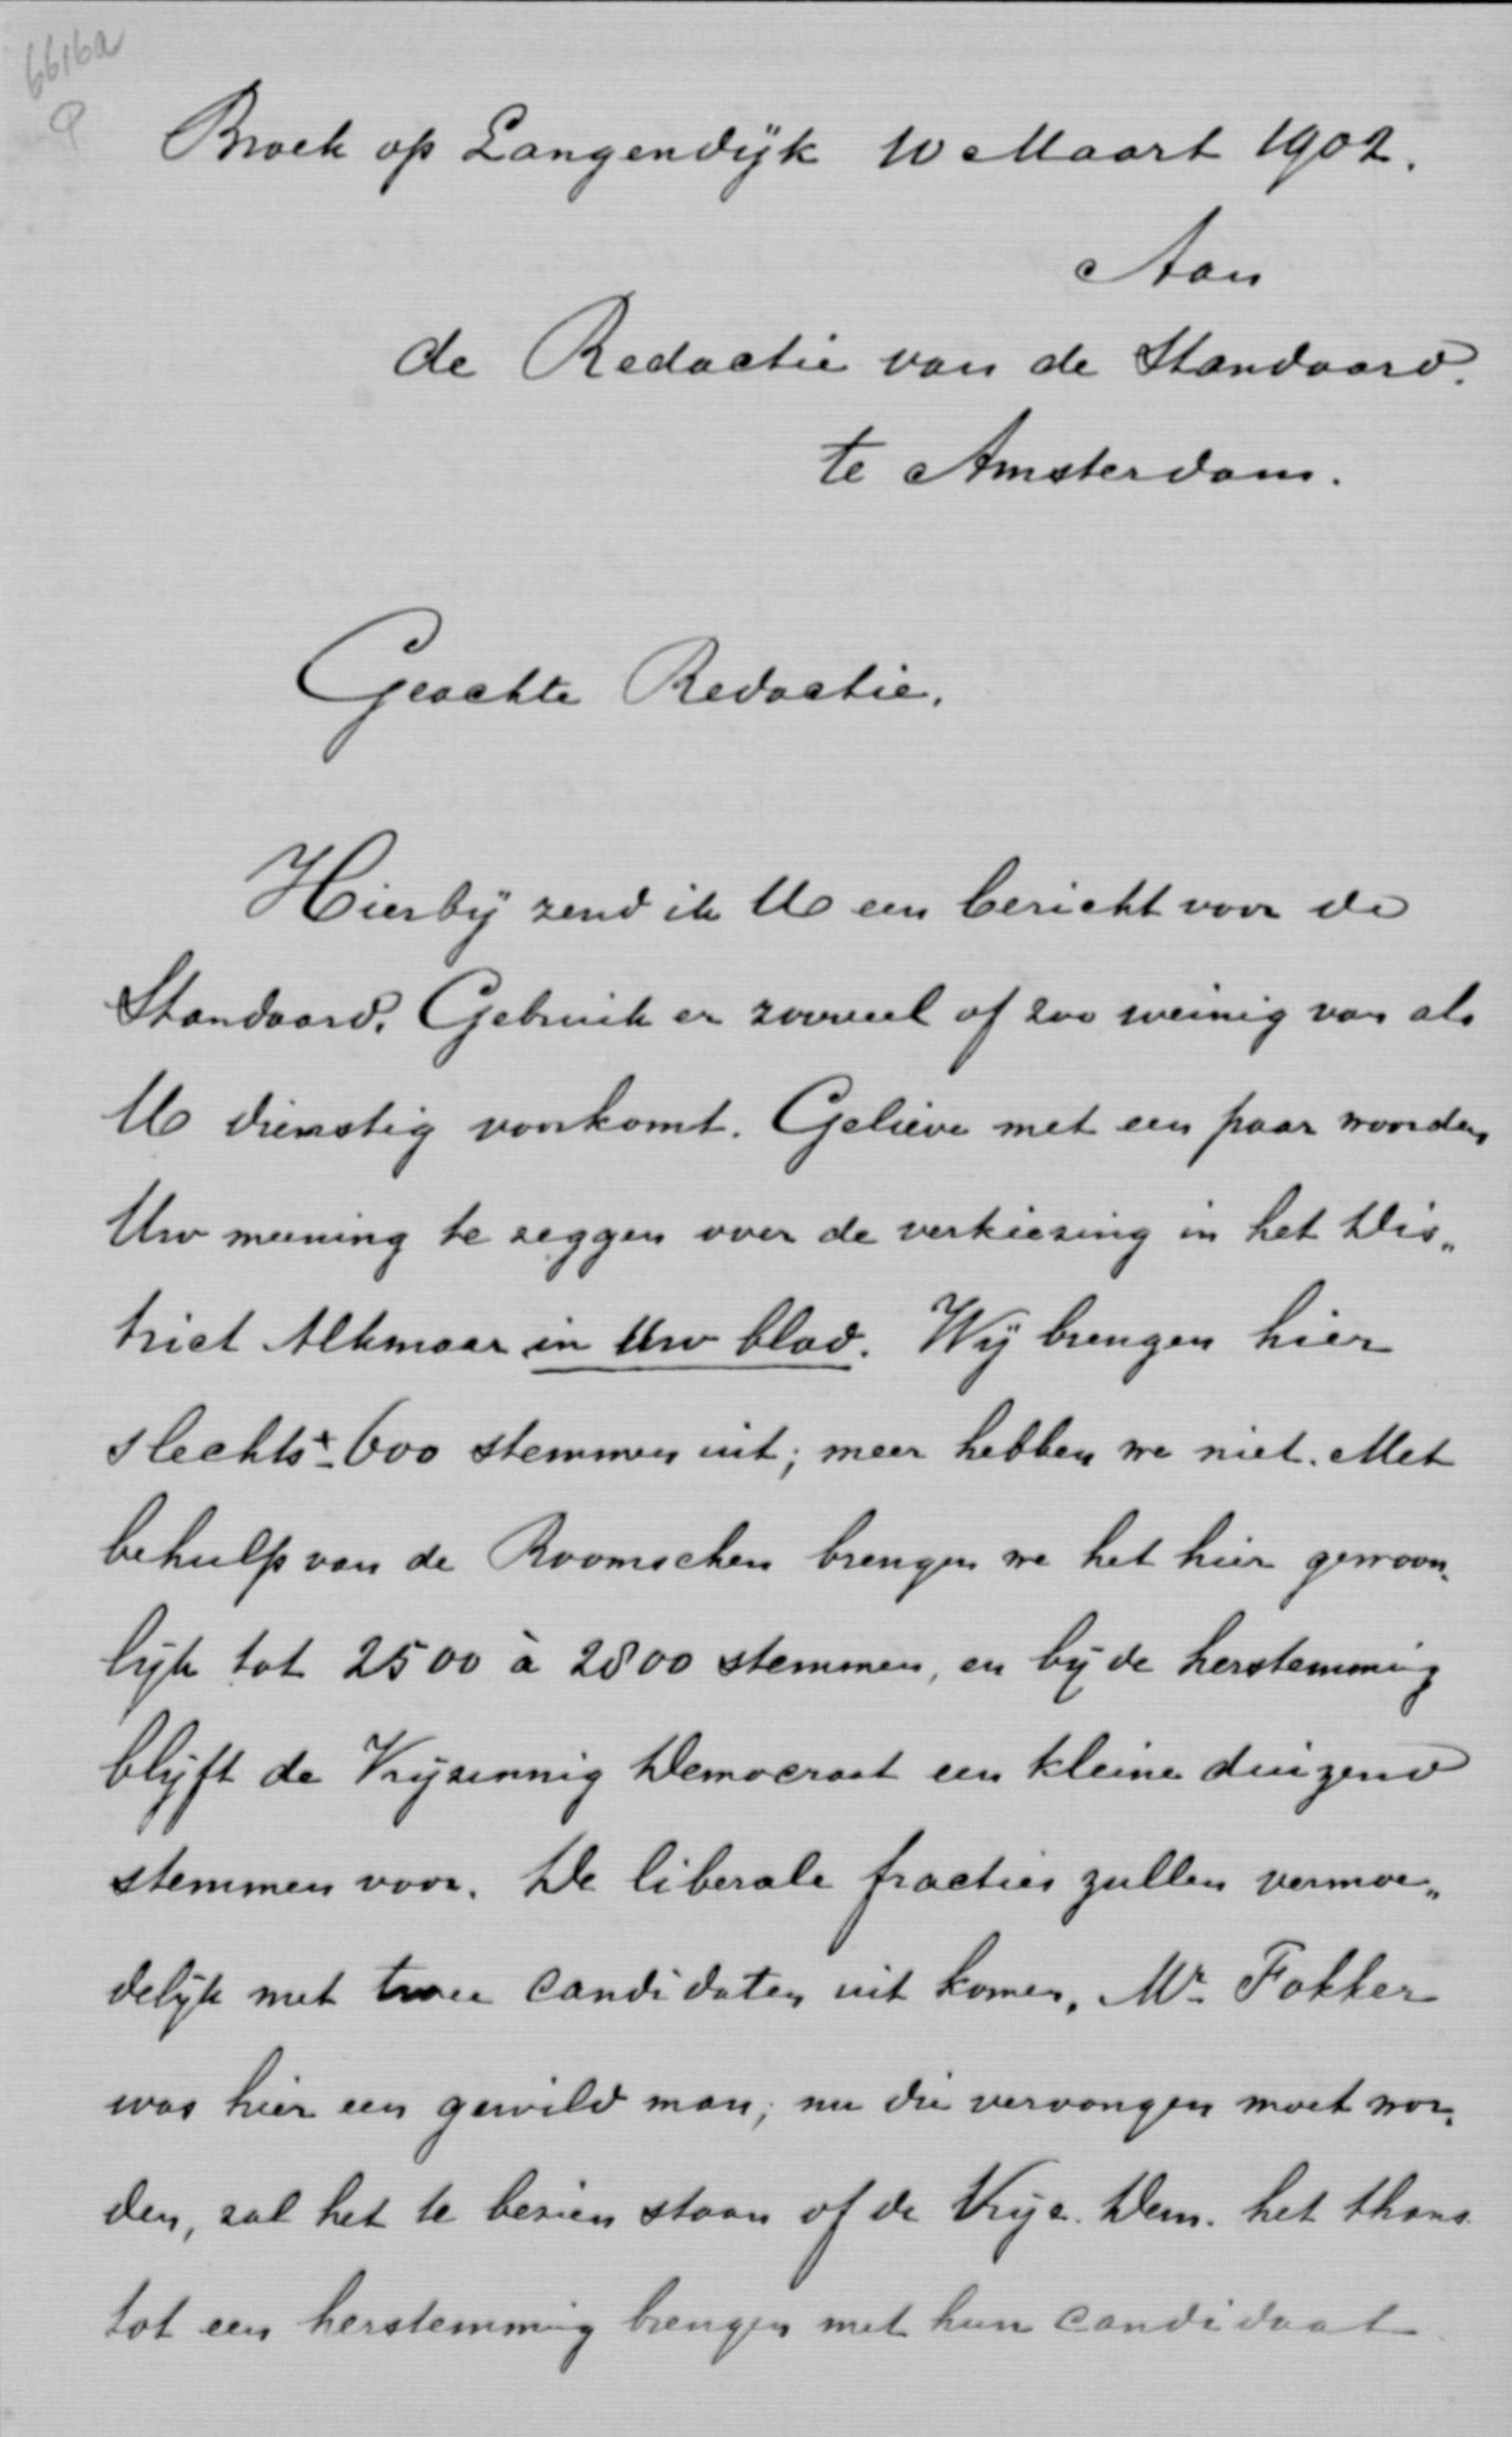 6616a
Broek op Langendijk 10 Maart 1902.
Aan
de Redactie van de Standaard.
te Amsterdam.
Geachte Redactie.
Hierbij zend ik U een bericht voor de
Standaard. Gebruik er zooveel of zoo weinig van als
U dienstig voorkomt. Gelieve met een paar woorden
Uw meening te zeggen over de verkiezing in het Dis„
trict Alkmaar in Uw blad. Wij brengen hier
slechts ± 600 stemmen uit; meer hebben we niet. Met
behulp van de Roomschen brengen we het hier gewoon„
lijk tot 2500 à 2800 stemmen, en bij de herstemming
blijft de Vrijzinnig Democraat een kleine duizend
stemmen voor. De liberale fracties zullen vermoe„
delijk met twee candidaten uit komen. Mr. Fokker
was hier een gewild man; nu die vervangen moet wor„
den, zal het te bezien staan of de Vrijz. Dem. het thans
tot een herstemming brengen met hun candidaat